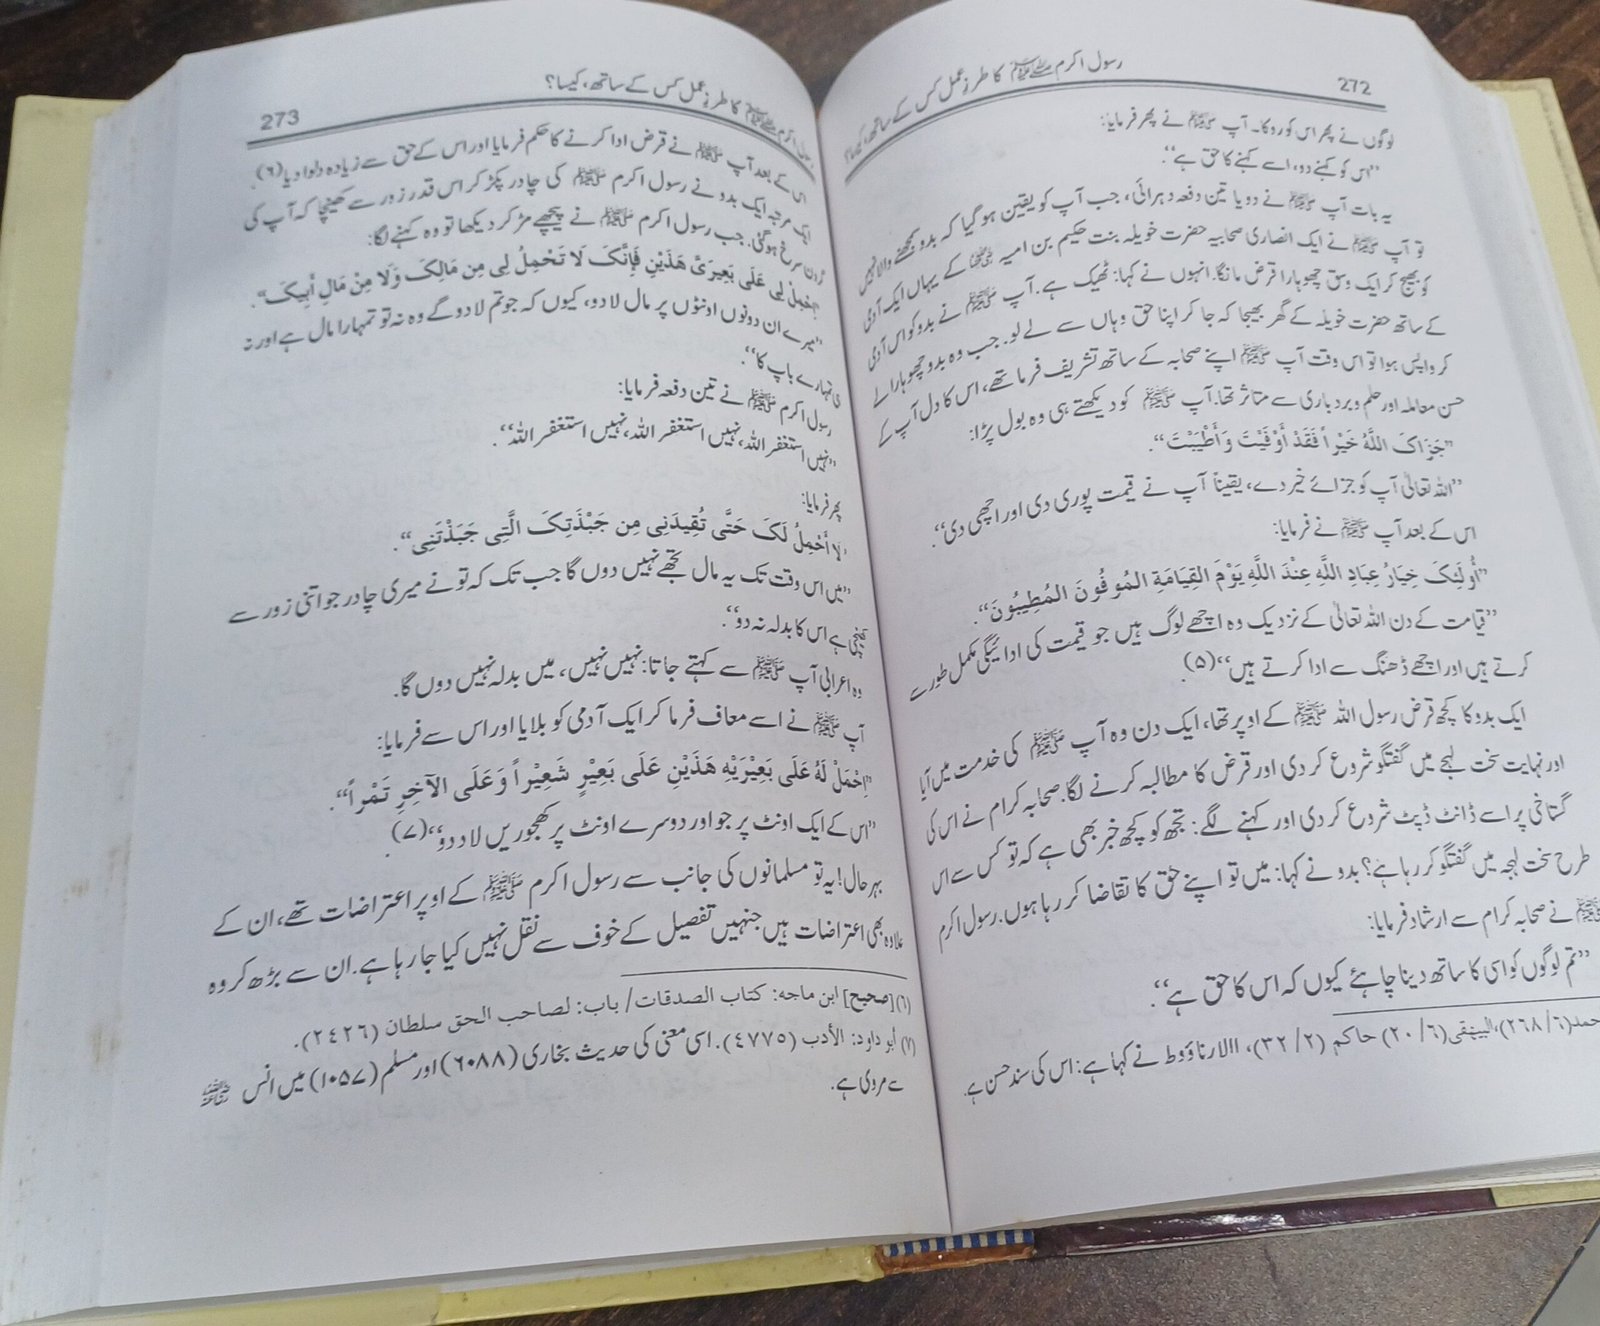 272
رسول اکرم ﷺ کا طرزِ عمل کس کے ساتھ، کیسا؟
لوگوں نے پھر اس کو روکا۔ آپ ﷺ نے پھر فرمایا:
”اس کو کہنے دو، اسے کہنے کا حق ہے“۔
یہ بات آپ ﷺ نے دو یا تین دفعہ دہرائی، جب آپ کو یقین ہو گیا کہ بدو سمجھنے والا نہیں
تو آپ ﷺ نے ایک انصاری صحابیہ حضرت خویلہ بنت حکیم بن امیہ کے یہاں ایک آدمی
کو بھیج کر ایک وسق چھوہارا قرض مانگا. انہوں نے کہا: ٹھیک ہے. آپ ﷺ نے بدو کو اس آدمی
کے ساتھ حضرت خویلہ کے گھر بھیجا کہ جا کر اپنا حق وہاں سے لے لو. جب وہ بدو چھوہارا لے
کر واپس ہوا تو اس وقت آپ ﷺ اپنے صحابہ کے ساتھ تشریف فرما تھے، اس کا دل آپ کے
حسن معاملہ اور حلم و بردباری سے متاثر تھا. آپ ﷺ کو دیکھتے ہی وہ بول پڑا:
”جَزَاکَ اللَّهُ خَيْراً فَقَدْ أَوْفَيْتَ وَأَطْيَبْتَ“.
”اللہ تعالیٰ آپ کو جزائے خیر دے، یقیناً آپ نے قیمت پوری دی اور اچھی دی“.
اس کے بعد آپ ﷺ نے فرمایا:
”أُولَئِکَ خِيَارُ عِبَادِ اللَّهِ عِنْدَ اللَّهِ يَوْمَ القِيَامَةِ المُوفُونَ المُطِيبُونَ“.
”قیامت کے دن اللہ تعالیٰ کے نزدیک وہ اچھے لوگ ہیں جو قیمت کی ادائیگی مکمل طور سے
کرتے ہیں اور اچھے ڈھنگ سے ادا کرتے ہیں“(۵).
ایک بدو کا کچھ قرض رسول اللہ ﷺ کے اوپر تھا، ایک دن وہ آپ ﷺ کی خدمت میں آیا
اور نہایت سخت لہجے میں گفتگو شروع کر دی اور قرض کا مطالبہ کرنے لگا. صحابہ کرام نے اس کی
گستاخی پر اسے ڈانٹ ڈپٹ شروع کر دی اور کہنے لگے: تجھ کو کچھ خبر بھی ہے کہ تو کس سے اس
طرح سخت لہجہ میں گفتگو کر رہا ہے؟ بدو نے کہا: میں تو اپنے حق کا تقاضا کر رہا ہوں. رسول اکرم
ﷺ نے صحابہ کرام سے ارشاد فرمایا:
”تم لوگوں کو اسی کا ساتھ دینا چاہئے کیوں کہ اس کا حق ہے“.
حمد(۲۶۸/۶)، البیہقی(۲۰/۶) حاکم (۳۲/۲)، االارناؤوط نے کہا ہے: اس کی سند حسن ہے.
273
رسول اکرم ﷺ کا طرزِ عمل کس کے ساتھ، کیسا؟
اس کے بعد آپ ﷺ نے قرض ادا کرنے کا حکم فرمایا اور اس کے حق سے زیادہ دلوا دیا(۶).
ایک مرتبہ ایک بدو نے رسول اکرم ﷺ کی چادر پکڑ کر اس قدر زور سے کھینچا کہ آپ کی
گردن سرخ ہو گئی. جب رسول اکرم ﷺ نے پیچھے مڑ کر دیکھا تو وہ کہنے لگا:
”اِحْمِلْ لِی عَلَی بَعِيرَیَّ هَذَيْنِ فَإِنَّکَ لَا تَحْمِلُ لِی مِن مَالِکَ وَلَا مِنْ مَالِ أَبِیکَ“.
”میرے ان دونوں اونٹوں پر مال لا دو، کیوں کہ جو تم لا دو گے وہ نہ تو تمہارا مال ہے اور نہ
ہی تمہارے باپ کا“.
رسول اکرم ﷺ نے تین دفعہ فرمایا:
”نہیں استغفر اللہ، نہیں استغفر اللہ، نہیں استغفر اللہ“.
پھر فرمایا:
”لَا أَحْمِلُ لَکَ حَتَّی تُقِيدَنِی مِن جَبْذَتِکَ الَّتِی جَبَذْتَنِی“.
”میں اس وقت تک یہ مال تجھے نہیں دوں گا جب تک کہ تو نے میری چادر جو اتنی زور سے
کھینچی ہے اس کا بدلہ نہ دو“.
وہ اعرابی آپ ﷺ سے کہتے جاتا: نہیں نہیں، میں بدلہ نہیں دوں گا.
آپ ﷺ نے اسے معاف فرما کر ایک آدمی کو بلایا اور اس سے فرمایا:
”اِحْمَلْ لَهُ عَلَی بَعِيْرَيْهِ هَذَيْنِ عَلَی بَعِيْرٍ شَعِيْراً وَعَلَی الآخِرِ تَمْراً“.
”اس کے ایک اونٹ پر جو اور دوسرے اونٹ پر کھجوریں لا دو“(۷).
بہر حال! یہ تو مسلمانوں کی جانب سے رسول اکرم ﷺ کے اوپر اعتراضات تھے، ان کے
علاوہ بھی اعتراضات ہیں جنہیں تفصیل کے خوف سے نقل نہیں کیا جا رہا ہے. ان سے بڑھ کر وہ
(٦)[صحیح] ابن ماجہ: کتاب الصدقات/ باب: لصاحب الحق سلطان (٢٤٢٦).
(٧) أبو داود: الأدب (٤٧٧٥). اسی معنی کی حدیث بخاری (٦٠٨٨) اور مسلم (١٠٥٧) میں انس رضی اللہ عنہ
سے مروی ہے.